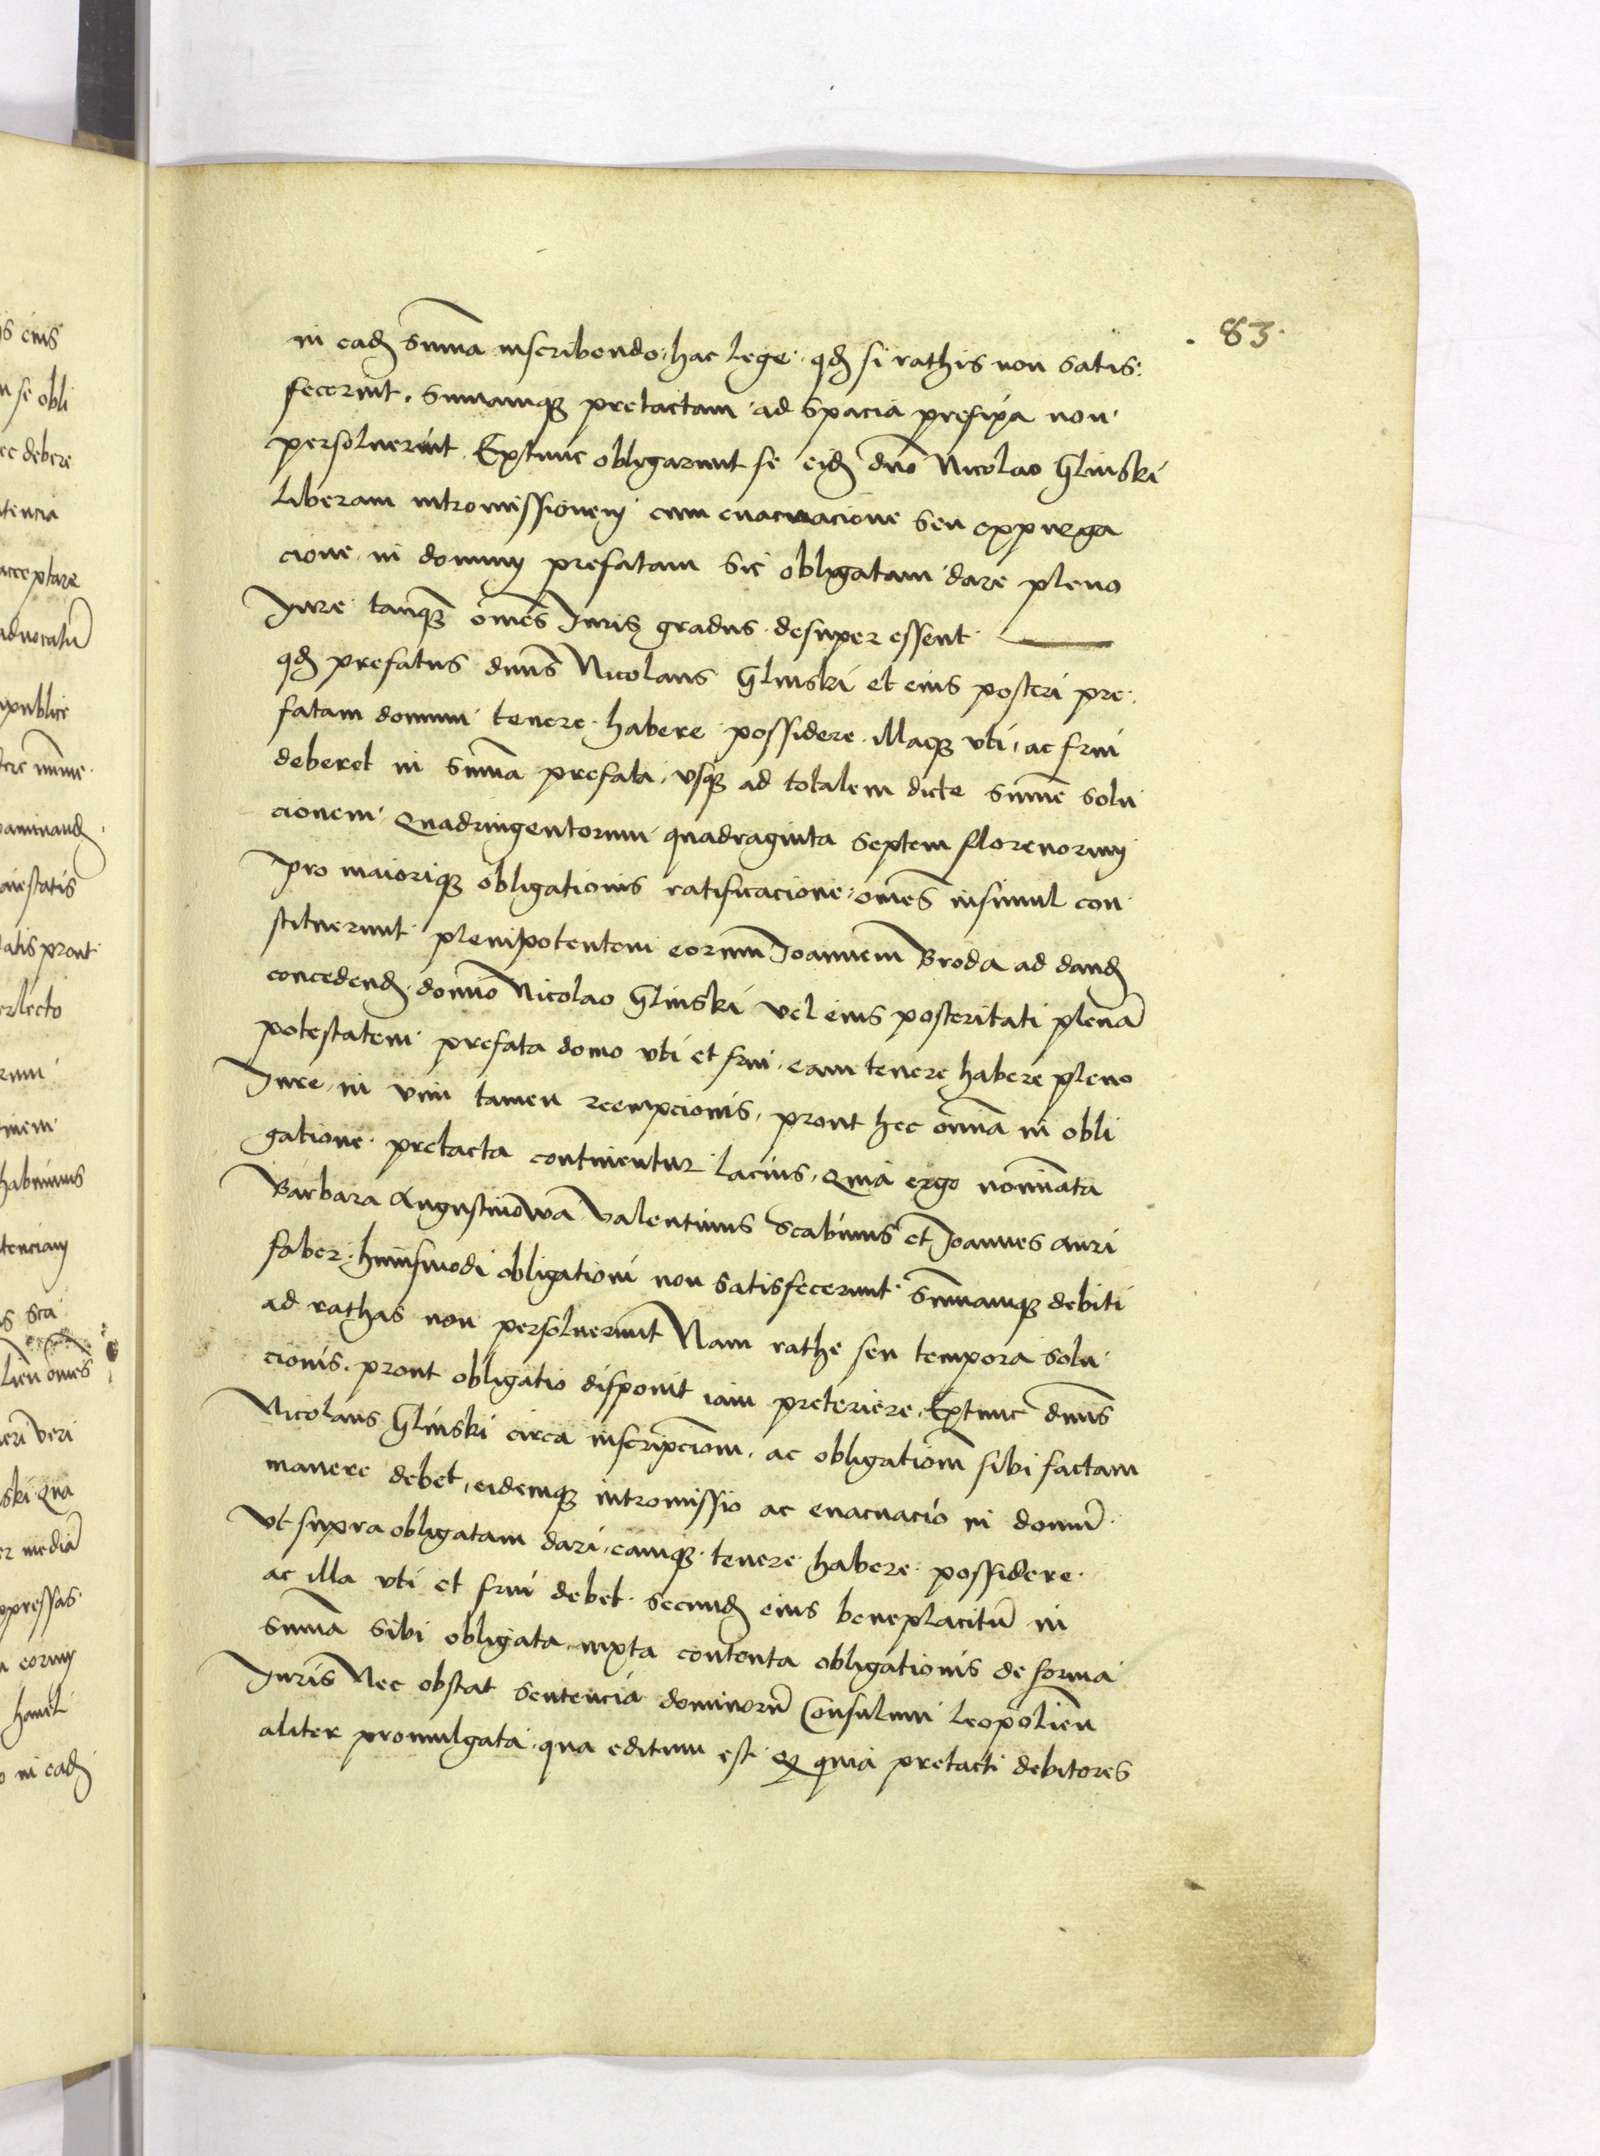 83
in eadem summa inscribendo, hac lege, quod si rathis non satis
fecerint, summamque pretactam ad spacia prefixa non
persolverint, Extunc obligarunt se eidem domino Nicolao Glinski
liberam intromissionem cum evacuacione seu expurga
cione in domum prefatam sic obligatam dare pleno
Jure tanquam omnes Juris gradus desuper essent
quod prefatus dominus Nicolaus Glinski et eius posteri pre
fatam domum tenere habere possidere illaque uti, ac frui
deberet in summa prefata, usque ad totalem dicte summe solu
cionem Quadringentorum quadraginta septem florenorum
pro maiorique obligationis ratificacione, omnes insimul con
stituerunt plenipotentem eorum Joannem Broda ad dandum
concedendum domino Nicolao Glinski vel eius posteritati plenam
potestatem prefata domo uti et frui, eam tenere habere pleno
Jure, in vim tamen reempcionis, prout hec omnia in obli
gatione pretacta continentur lacius, Quia ergo nominata
Barbara Augustinowa Valentinus Scabinus et Joannes Auri
faber, huiusmodi obligationi non satisfecerunt summamque debiti
ad rathas non persolverunt Nam rathe seu tempora solu
cionis, prout obligatio disponit iam preteriere, Extunc dominus
Nicolaus Glinski circa inscripcionem, ac obligationem sibi factam
manere debet, eidemque intromissio ac evacuacio in domum
ut supra obligatam dari, eamque tenere habere possidere
ac illa uti et frui debet secundum eius beneplacitum in
summa sibi obligata, iuxta contenta obligationis de forma
Juris Nec obstat sentencia dominorum Consulum leopolien
aliter promulgata, qua editum est Quod quia pretacti debitores